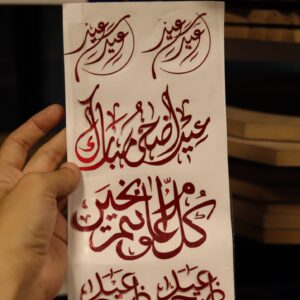 عيد سعيد عيد سعيد
عيد أضحى مبارك
كل عام وأنتم بخير
عيد عيد